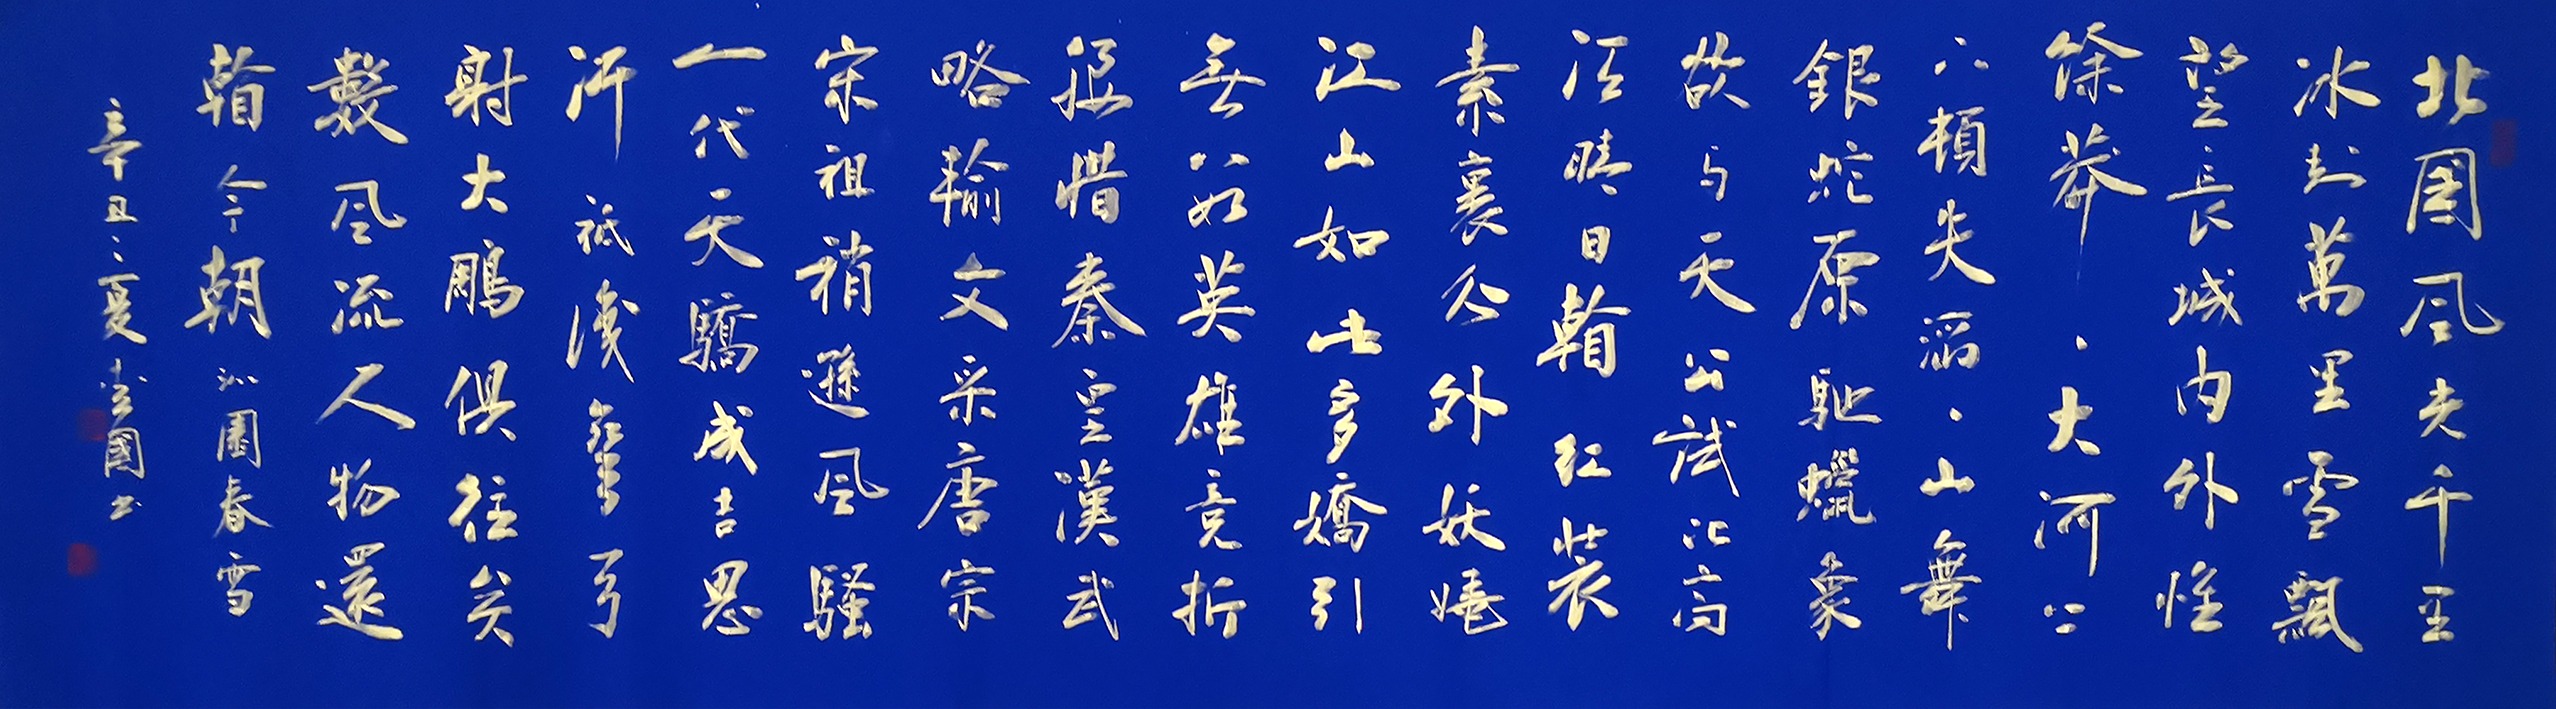 北國風光千里
冰封萬里雪飄
望長城内外惟
餘莽、大河上
下頓失滔、山舞
銀蛇原馳蠟象
欲与天公試比高
須晴日看紅裝
素裹分外妖嬈
江山如此多嬌引
無數英雄竞折
腰惜秦皇漢武
略輸文采唐宗
宋祖稍遜風騷
一代天驕成吉思
汗祗識彎弓
射大鵰俱往矣
數風流人物還
看今朝 沁園春雪
辛丑之夏國书